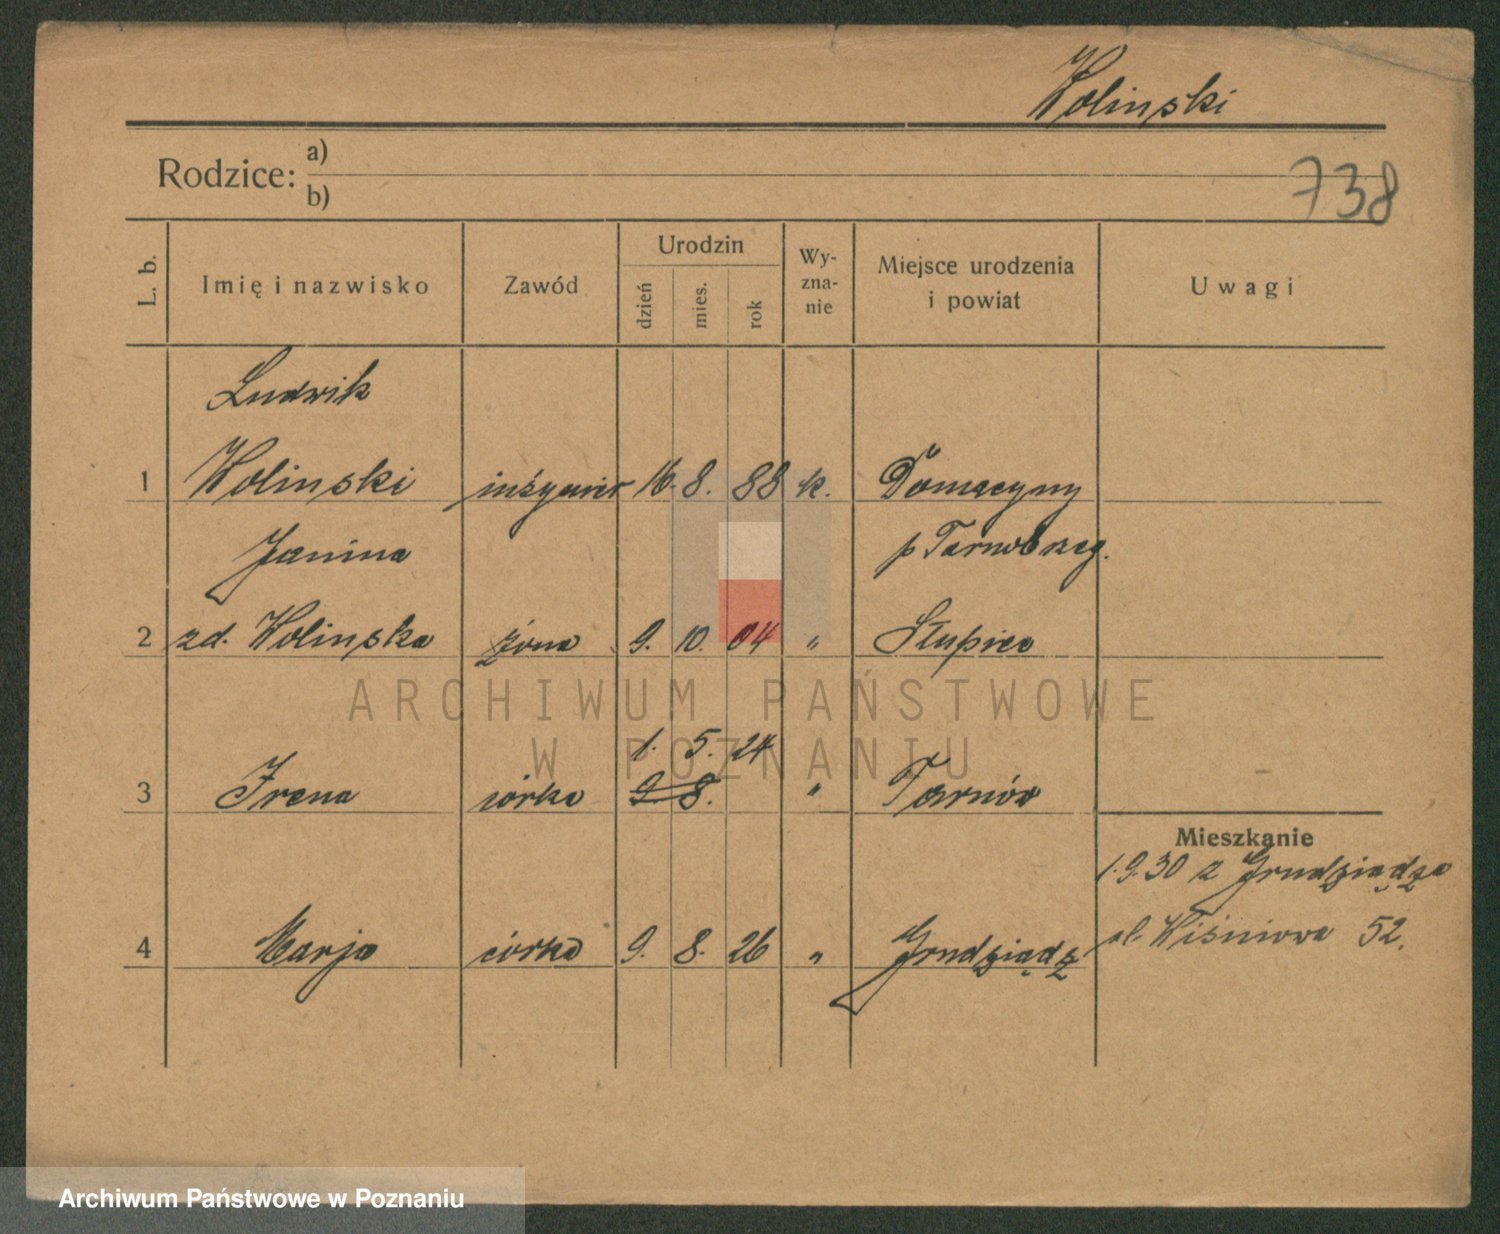 Wolinski
Rodzice: a)
b)
738
L. b.
Imię i nazwisko
Zawód
Urodzin
dzień
mies.
rok
Wy-
zna-
nie
Miejsce urodzenia
i powiat
Uwagi
Ludwik
1 Wolinski inżynier 16. 8. 88 k.
Janina p Tarnobrzeg.
2 zd. Wolinska żona 9. 10. 04 "
ARCHIWUM PAŃSTWOWE
W POZNANIU
1. 5. 24
3 Irena córka 9 8. " Tarnów
Mieszkanie
1.9.30 z Grudziądza
4 Marja córka 9. 8. 26 " Grudziądz ul. Wiśniowa 52.
Archiwum Państwowe w Poznaniu